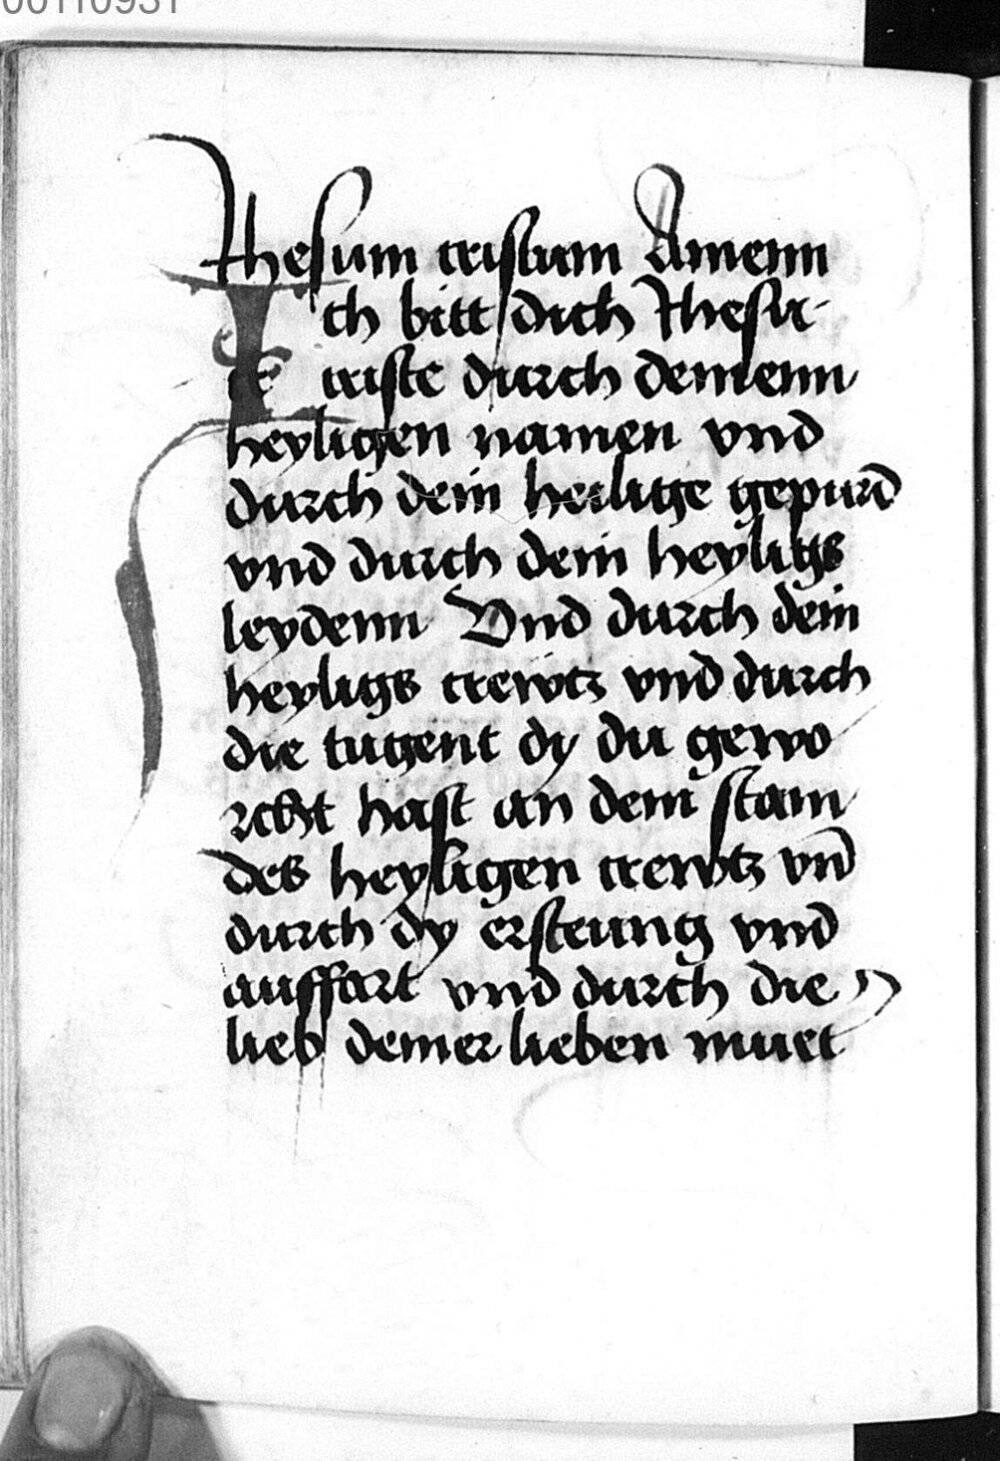 00110931
Jhesum cristum Amenn
Ich bitt dich Jhesu
criste durch deinenn
heyligen namen vnd
durch dein heilige gepurd
vnd durch dein heyligs
leydenn Vnd durch dein
heyligs crewtz vnd durch
die tugent dy du gewo
rcht hast an dem stam
des heyligen crewtz vnd
durch dy ersteung vnd
auffart vnd durch die
lieb deiner lieben muet